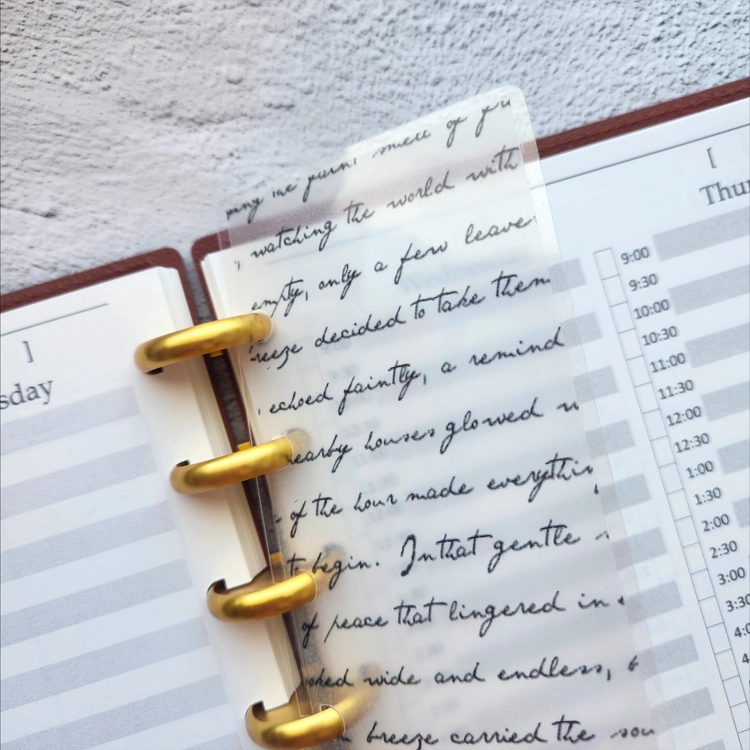 smell of
watching the world with
empty, only a few leave
reeze decided to take them
echoed faintly, a remind
nearby houses glowed
of the hour made everythin
to begin. In that gentle
of peace that lingered in
oked wide and endless,
breeze carried the sou
]
sday
[
Thur
9:00
9:30
10:00
10:30
11:00
11:30
12:00
12:30
1:00
1:30
2:00
2:30
3:00
3:30
4:0
4: